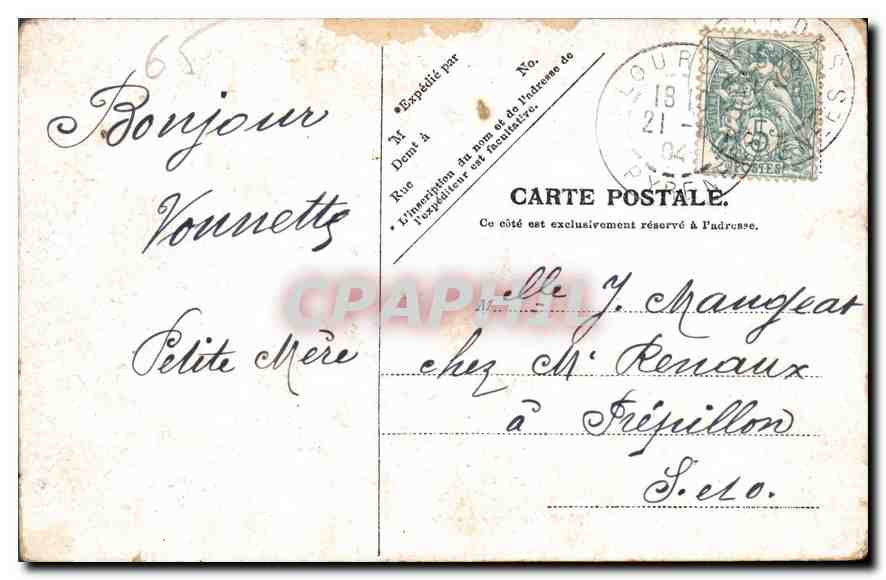 65
Bonjour
Vonnette
Petite Mère
*Expédié par
No.
M
Demt à
Rue
* L'inscription du nom et de l'adresse de
l'expéditeur est facultative.
LOURDES
18
21 -
04
5c
POSTES
CARTE POSTALE.
Ce côté est exclusivement réservé à l'adresse.
Mlle J. Mangeat
chez Mr Renaux
à Frépillon
S. et O.
CPAPHIL